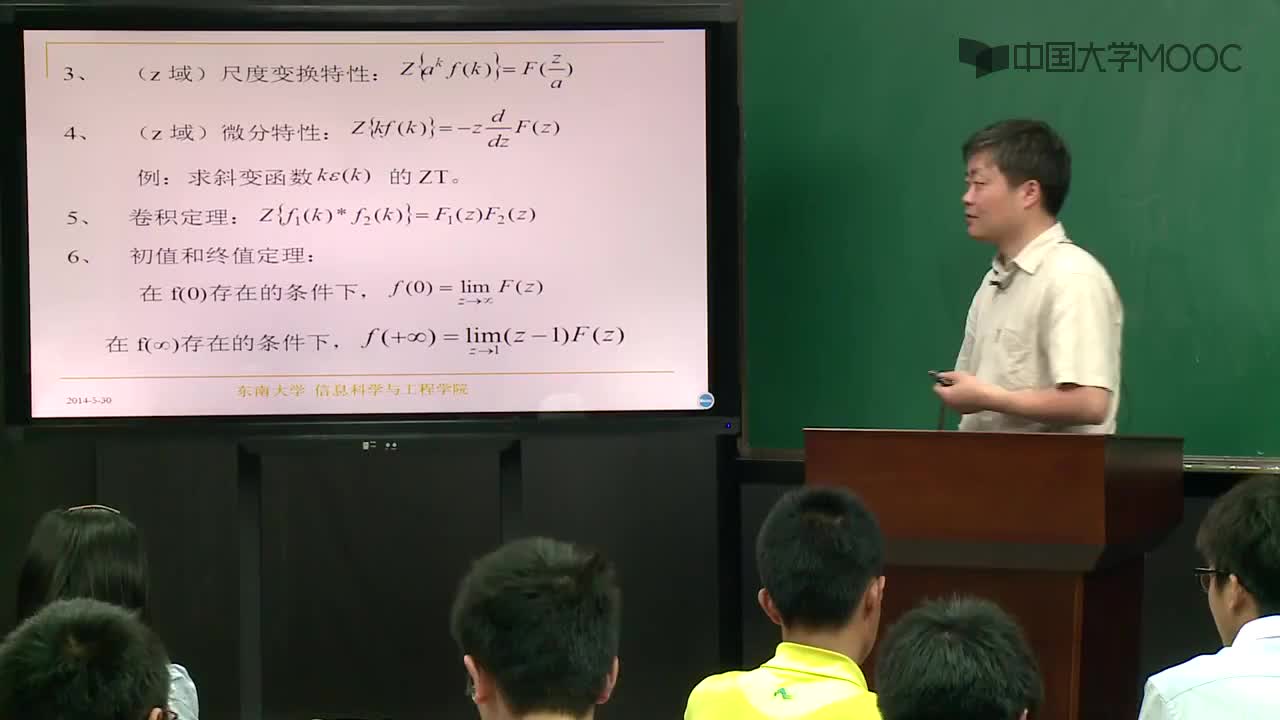 中国大学MOOC
3、 （z 域）尺度变换特性： Z{a^k f(k)}= F(z/a)
4、 （z 域）微分特性： Z{kf(k)}= -z d/dz F(z)
例：求斜变函数 kε(k) 的 ZT。
5、 卷积定理： Z{f₁(k)* f₂(k)}= F₁(z)F₂(z)
6、 初值和终值定理：
在 f(0)存在的条件下， f(0) = lim z→∞ F(z)
在 f(∞)存在的条件下， f(+∞) = lim z→1 (z-1)F(z)
2014-5-30 东南大学 信息科学与工程学院